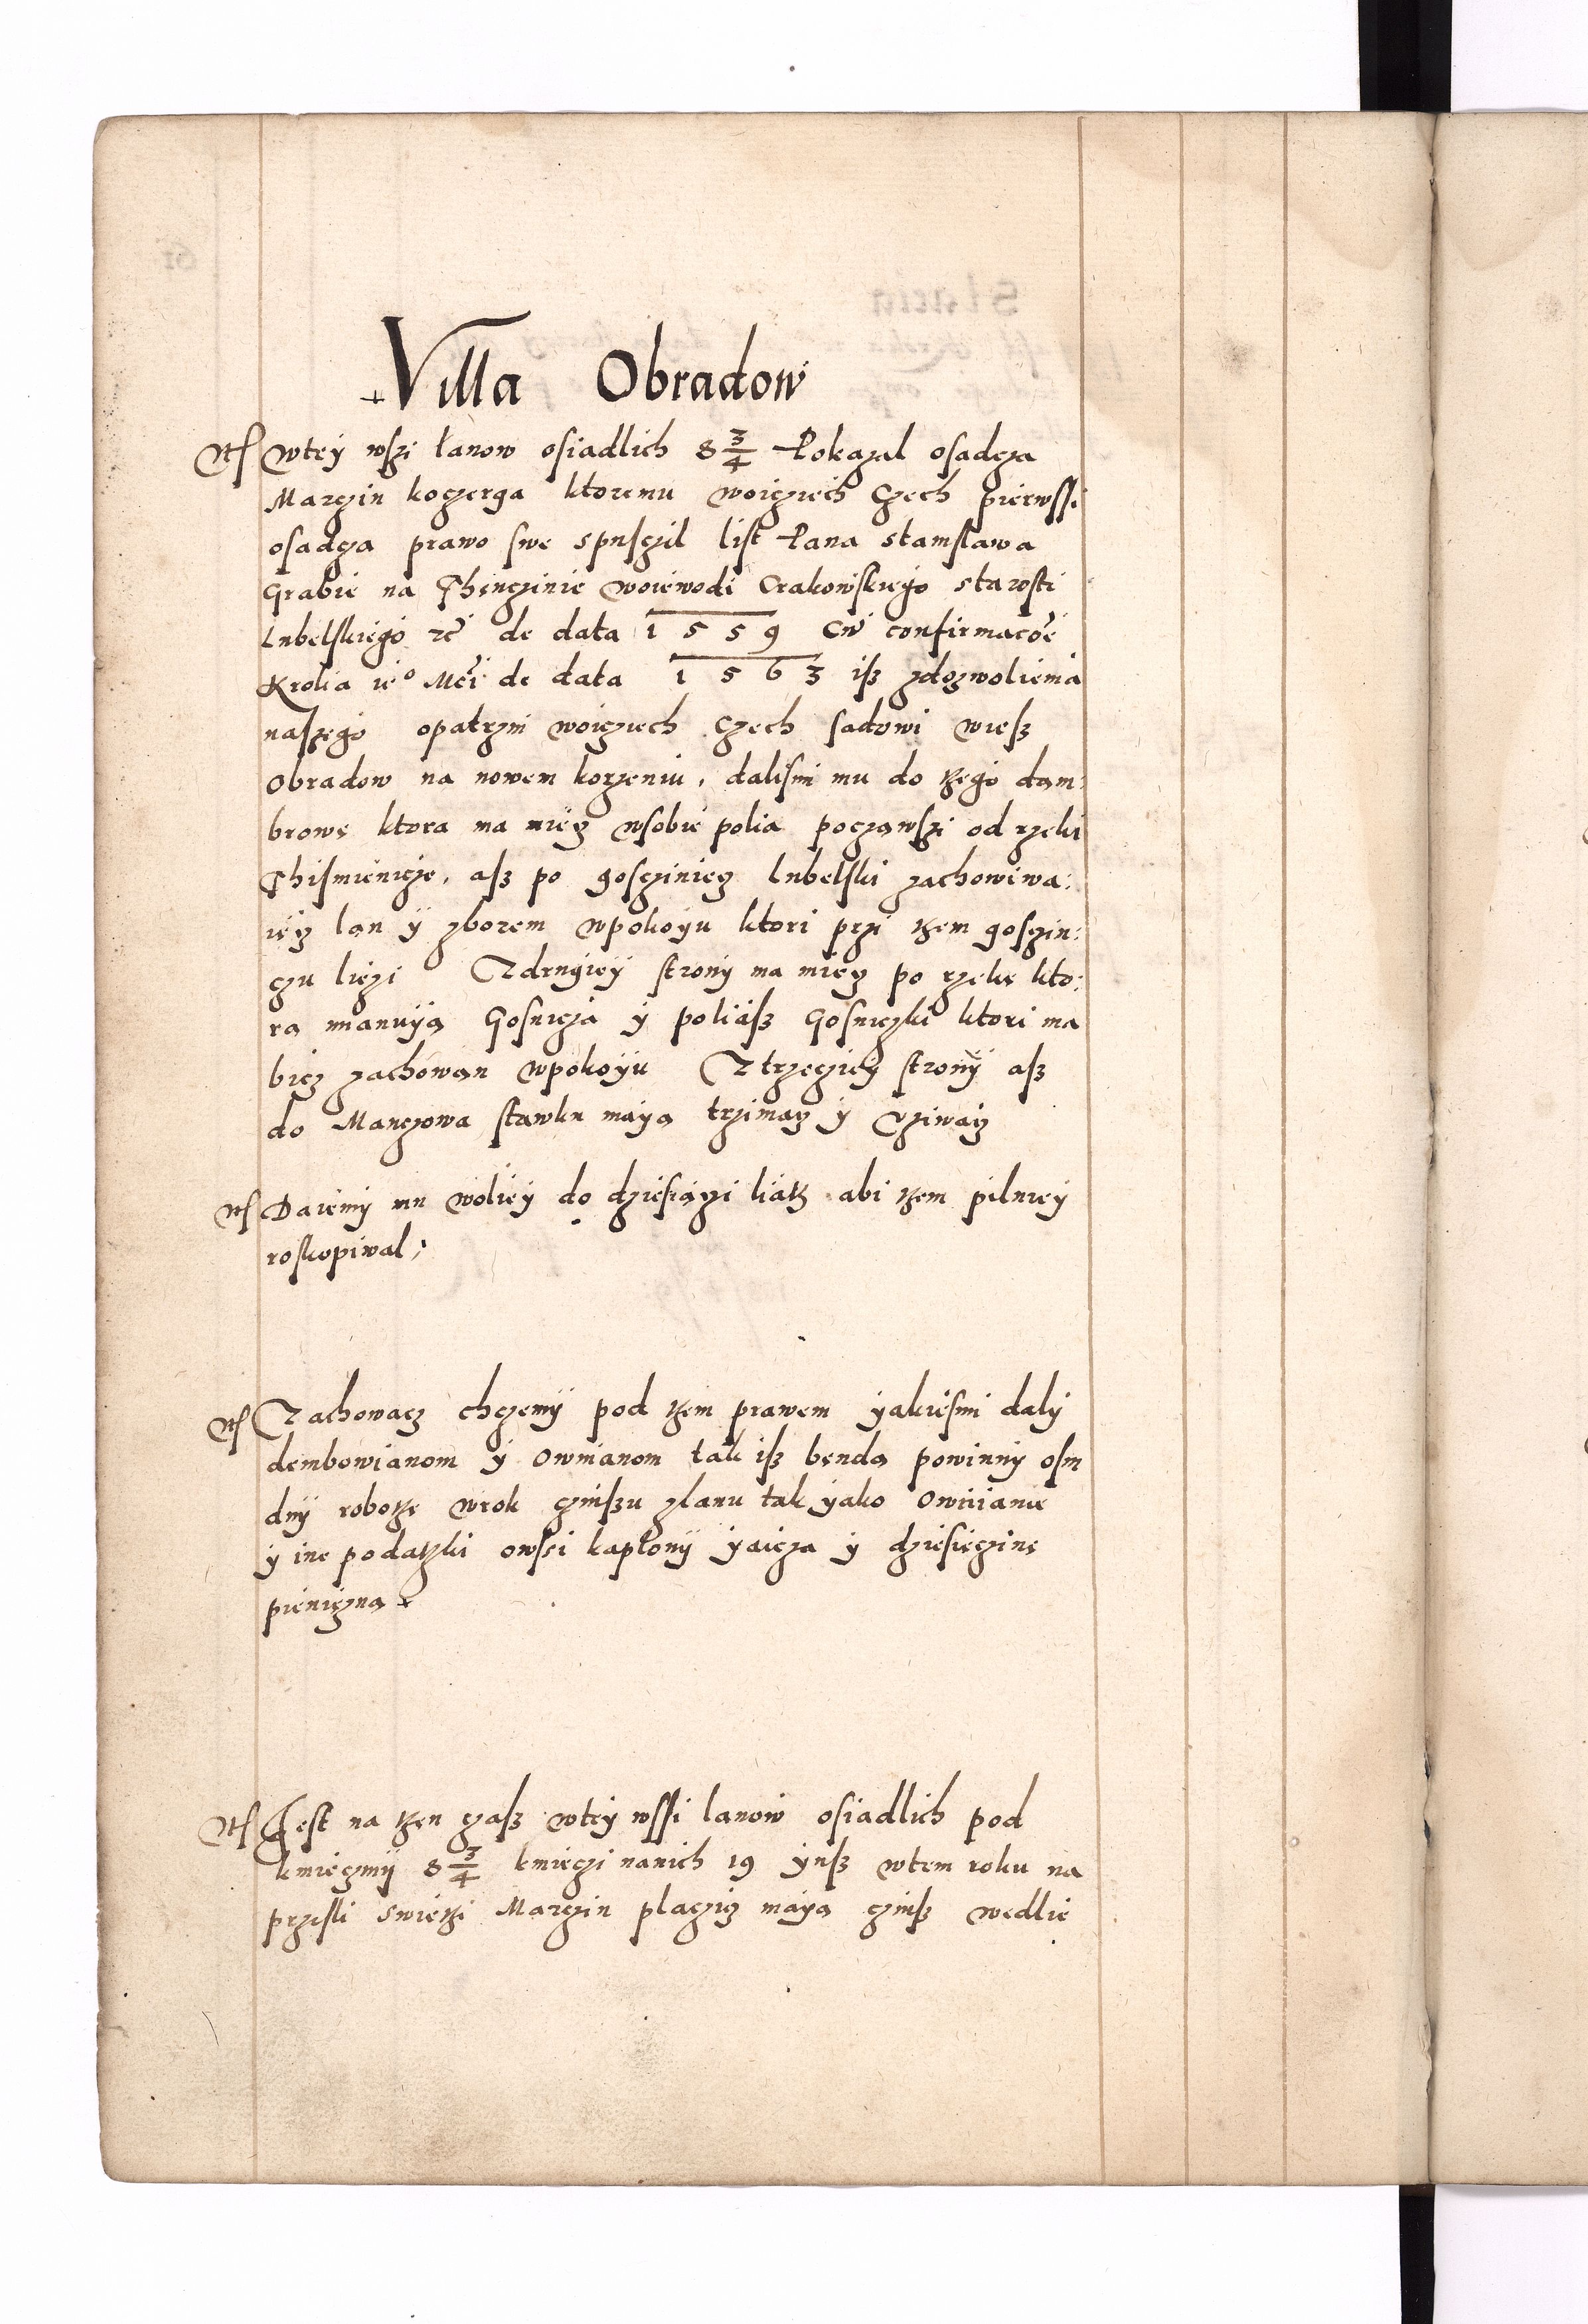 Villa Obradow
Nſ Wtey wſzi łanow oſiadlich 8 3/4 Pokazal oſadcza
Marczin koczerga ktoremu woicziech Czech pierwſſi
oſadcza prawo ſwe spuſczil liſt Pana stanislawa
Grabie na Thęnczinie woiewodi Crakowſkiego staroſti
Lubelſkiego rc̃ de data 1559 Cũ confirmacõe
Krolia ie° Mc̃i de data 1563 iſz zdozwolienia
naſzego opatrzni woiczech Czech sadowi wieſz
Obradow na nowem korzeniu, daliſmi mu do tzego dam:
browę ktora ma miecz wſobie polia począwſzi od rzeki
Thiſmienicze, aſz po goſcziniecz lubelſki zachowiwa:
iącz lan y zborem wpokoyu ktori przi tzem goſczin:
czu liezi Zdrugiey ſtrony ma miecz po rzekę kto:
rą mianuyą Goſnicza y poliaſz Goſniczki ktori ma
bicz zachowan wpokoyu Ztrzecziey ſtrony aſz
do Manczowa ſtawku mayą trzimacz y Uziwacz
Nſ Daiemy mu woliey do dzieſiączi liatz abi tzem pilniey
roſkopiwal;
Nſ Zachowacz chczemy pod tzem prawem yakieſmi daly
dembowianom y Ownianom tak iſz bendą powinny oſm
dny robotzę wrok czinſzu zlanu tak yako Owniane
y ine podatzki owſsi kapłony yaicza y dzieſięczinę
pieniężną
Nſ Jeſt na tzen czaſz wtey wſſi lanow oſiadlich pod
kmieczmy 8 3/4 kmieczi nanich 19 ynſz wtem roku na
przeſli swietzi Marczin placzicz mayą czinſz wedlie